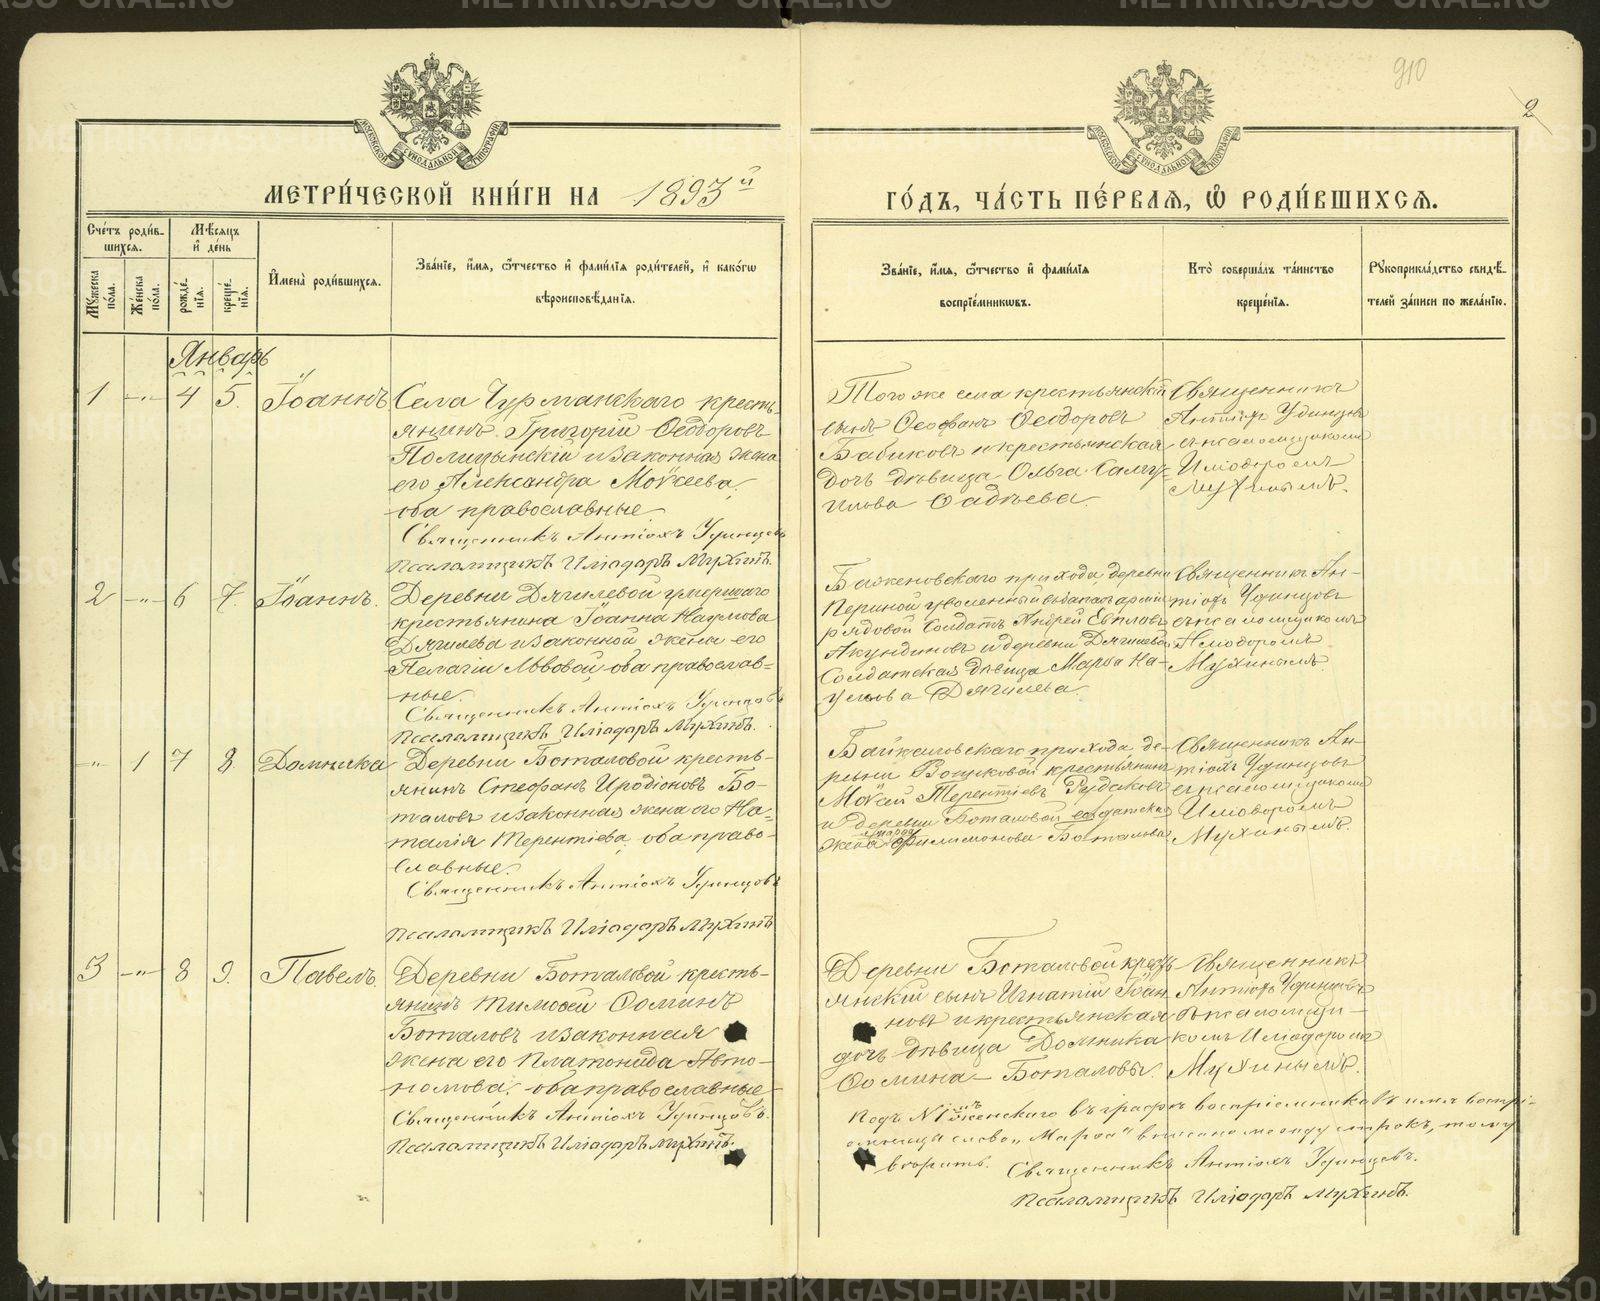 910
2
МОСКОВСКОЙ СѴНОДАЛЬНОЙ ТИПОГРАФІИ
МОСКОВСКОЙ СѴНОДАЛЬНОЙ ТИПОГРАФІИ
МЕТРИ́ЧЕСКОЙ КНИ́ГИ НА 1893й
ГО́ДЪ, ЧА́СТЬ ПЕ́РВАѦ, Ѡ҆ РОДИ́ВШИХСѦ.
Сче́тъ роди́в-
шихсѧ.
Мꙋ́жеска по́ла.
Же́нска по́ла.
Мѣ́сѧцъ
и҆ де́нь
рожде́-нїѧ.
креще́-нїѧ.
И҆мена̀ роди́вшихсѧ.
Зва́нїе, и҆́мѧ, ѻ҆́тчество и҆ фами́лїѧ роди́телей, и҆ како́гѡ
вѣроисповѣ́данїѧ.
Зва́нїе, и҆́мѧ, ѻ҆́тчество и҆ фами́лїѧ
воспрїе́мникѡвъ.
Кто̀ соверша́лъ та́инство
креще́нїѧ.
Рꙋкоприкла́дство свидѣ́-
телей за́писи по жела́нїю.
Январь
1 -"- 4 5. Іоаннъ
Села Чурманскаго кресть-
янинъ Григорій Ѳеодоровъ
Полицынскій и законная жена
его Александра Моѵсеева,
оба православные
Священникъ Антіохъ Удинцовъ
Псаломщикъ Иліодоръ Мухинъ.
Того же села крестьянскій
сынъ Ѳеофанъ Ѳеодоровъ
Бабиковъ и крестьянская
дочь дѣвица Ольга Саму-
илова Фадѣева.
Священникъ
Антіохъ Удинцовъ
съ псаломщикомъ
Иліодоромъ
Мухинымъ.
2 -"- 6 7. Іоаннъ.
Деревни Дягилевой умершаго
крестьянина Іоанна Наумова
Дягилева и законной жены его
Пелагіи Львовой, оба православ-
ные.
Священникъ Антіохъ Удинцовъ
Псаломщикъ Иліодоръ Мухинъ.
Баженовскаго прихода, деревни
Периной уволенный въ запасъ арміи
рядовой солдатъ Андрей Евпловъ
Акундиновъ и деревни Дягилевой
Солдатская дѣвица Марѳа На-
умова Дягилева.
Священникъ Ан-
тіохъ Удинцовъ
съ псаломщикомъ
Иліодоромъ
Мухинымъ
-"- 1 7 8. Домника
Деревни Боталовой кресть-
янинъ Стефанъ Иродіоновъ Бо-
таловъ и законная жена его На-
талія Терентіева, оба право-
славные.
Священникъ Антіохъ Удинцовъ
Псаломщикъ Иліодоръ Мухинъ
Байкаловскаго прихода де-
ревни крестьянинъ
Моѵсей Терентіевъ Рудаковъ
и деревни Боталовой солдатская
Марѳа
жена Филимонова Боталова
Священникъ Ан-
тіохъ Удинцовъ
съ псаломщикомъ
Иліодоромъ
Мухинымъ.
3 -"- 8 9. Павелъ.
Деревни Боталовой кресть-
янинъ Тимоѳей Ѳоминъ
Боталовъ и законная
жена его Платонида Авто-
номова, оба православные
Священникъ Антіохъ Удинцовъ.
Псаломщикъ Иліодоръ Мухинъ.
Деревни Боталовой кресть-
янскій сынъ Игнатій Іоан
новъ и крестьянская
дочь дѣвица Домника
Ѳомина - Боталовы.
Священникъ
Антіохъ Удинцовъ
съ псаломщи-
комъ Иліодоромъ
Мухинымъ.
Подъ №1мъ женскаго въ графѣ воспріемниковъ имя воспрі-
емницы слово "Марѳа" вписано между строкъ, тому
вѣрить. Священникъ Антіохъ Удинцовъ.
Псаломщикъ Иліодоръ Мухинъ.
METRIKI.GASO-URAL.RU